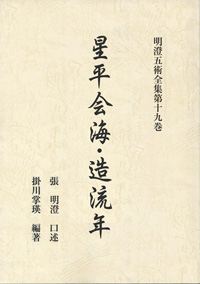 明澄五術全集第十九巻
星平会海・造流年
張　明澄　口述
掛川掌瑛　編著